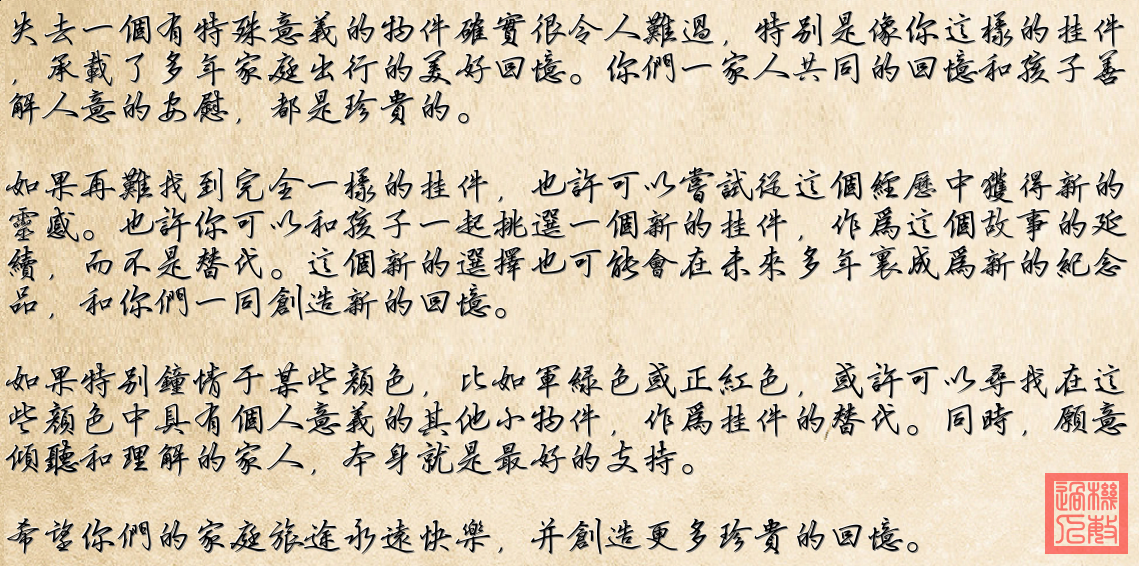 失去一個有特殊意義的物件確實很令人難過，特别是像你這樣的挂件
，承載了多年家庭出行的美好回憶。你們一家人共同的回憶和孩子善
解人意的安慰，都是珍貴的。
如果再難找到完全一樣的挂件，也許可以嘗試從這個經歷中獲得新的
靈感。也許你可以和孩子一起挑選一個新的挂件，作爲這個故事的延
續，而不是替代。這個新的選擇也可能會在未來多年裏成爲新的紀念
品，和你們一同創造新的回憶。
如果特别鐘情于某些顔色，比如軍綠色或正紅色，或許可以尋找在這
些顔色中具有個人意義的其他小物件，作爲挂件的替代。同時，願意
傾聽和理解的家人，本身就是最好的支持。
希望你們的家庭旅途永遠快樂，并創造更多珍貴的回憶。